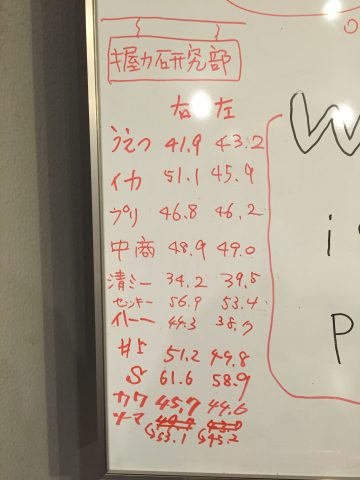 握力研究部
右 左
うえつ 41.9 43.2
イカ 51.1 45.9
プリ 46.8 46.2
中商 48.9 49.0
清ミー 34.2 39.5
センキー 56.9 53.4
イトーー 44.3 38.7
井5 51.2 49.8
S 61.6 58.9
カワ 45.7 44.6
ソーマ
53.1 45.2
W
i
P